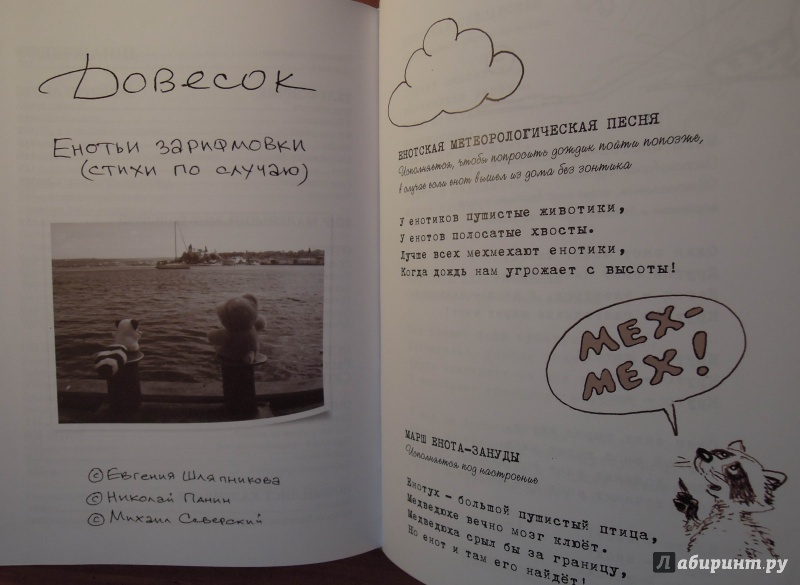 Довесок
Енотьи зарифмовки
(стихи по случаю)
© Евгения Шляпникова
© Николай Панин
© Михаил Северский
ЕНОТСКАЯ МЕТЕОРОЛОГИЧЕСКАЯ ПЕСНЯ
Исполняется, чтобы попросить дождик пойти попозже,
в случае если енот вышел из дома без зонтика
У енотиков пушистые животики,
У енотов полосатые хвосты.
Лучше всех мехмехают енотики,
Когда дождь нам угрожает с высоты!
МЕХ-
МЕХ!
МАРШ ЕНОТА-ЗАНУДЫ
Исполняется под настроение
Енотух – большой пушистый птица,
Медведюхе вечно мозг клюёт.
Медведюха срыл бы за границу,
Но енот и там его найдёт!
Лабиринт.ру